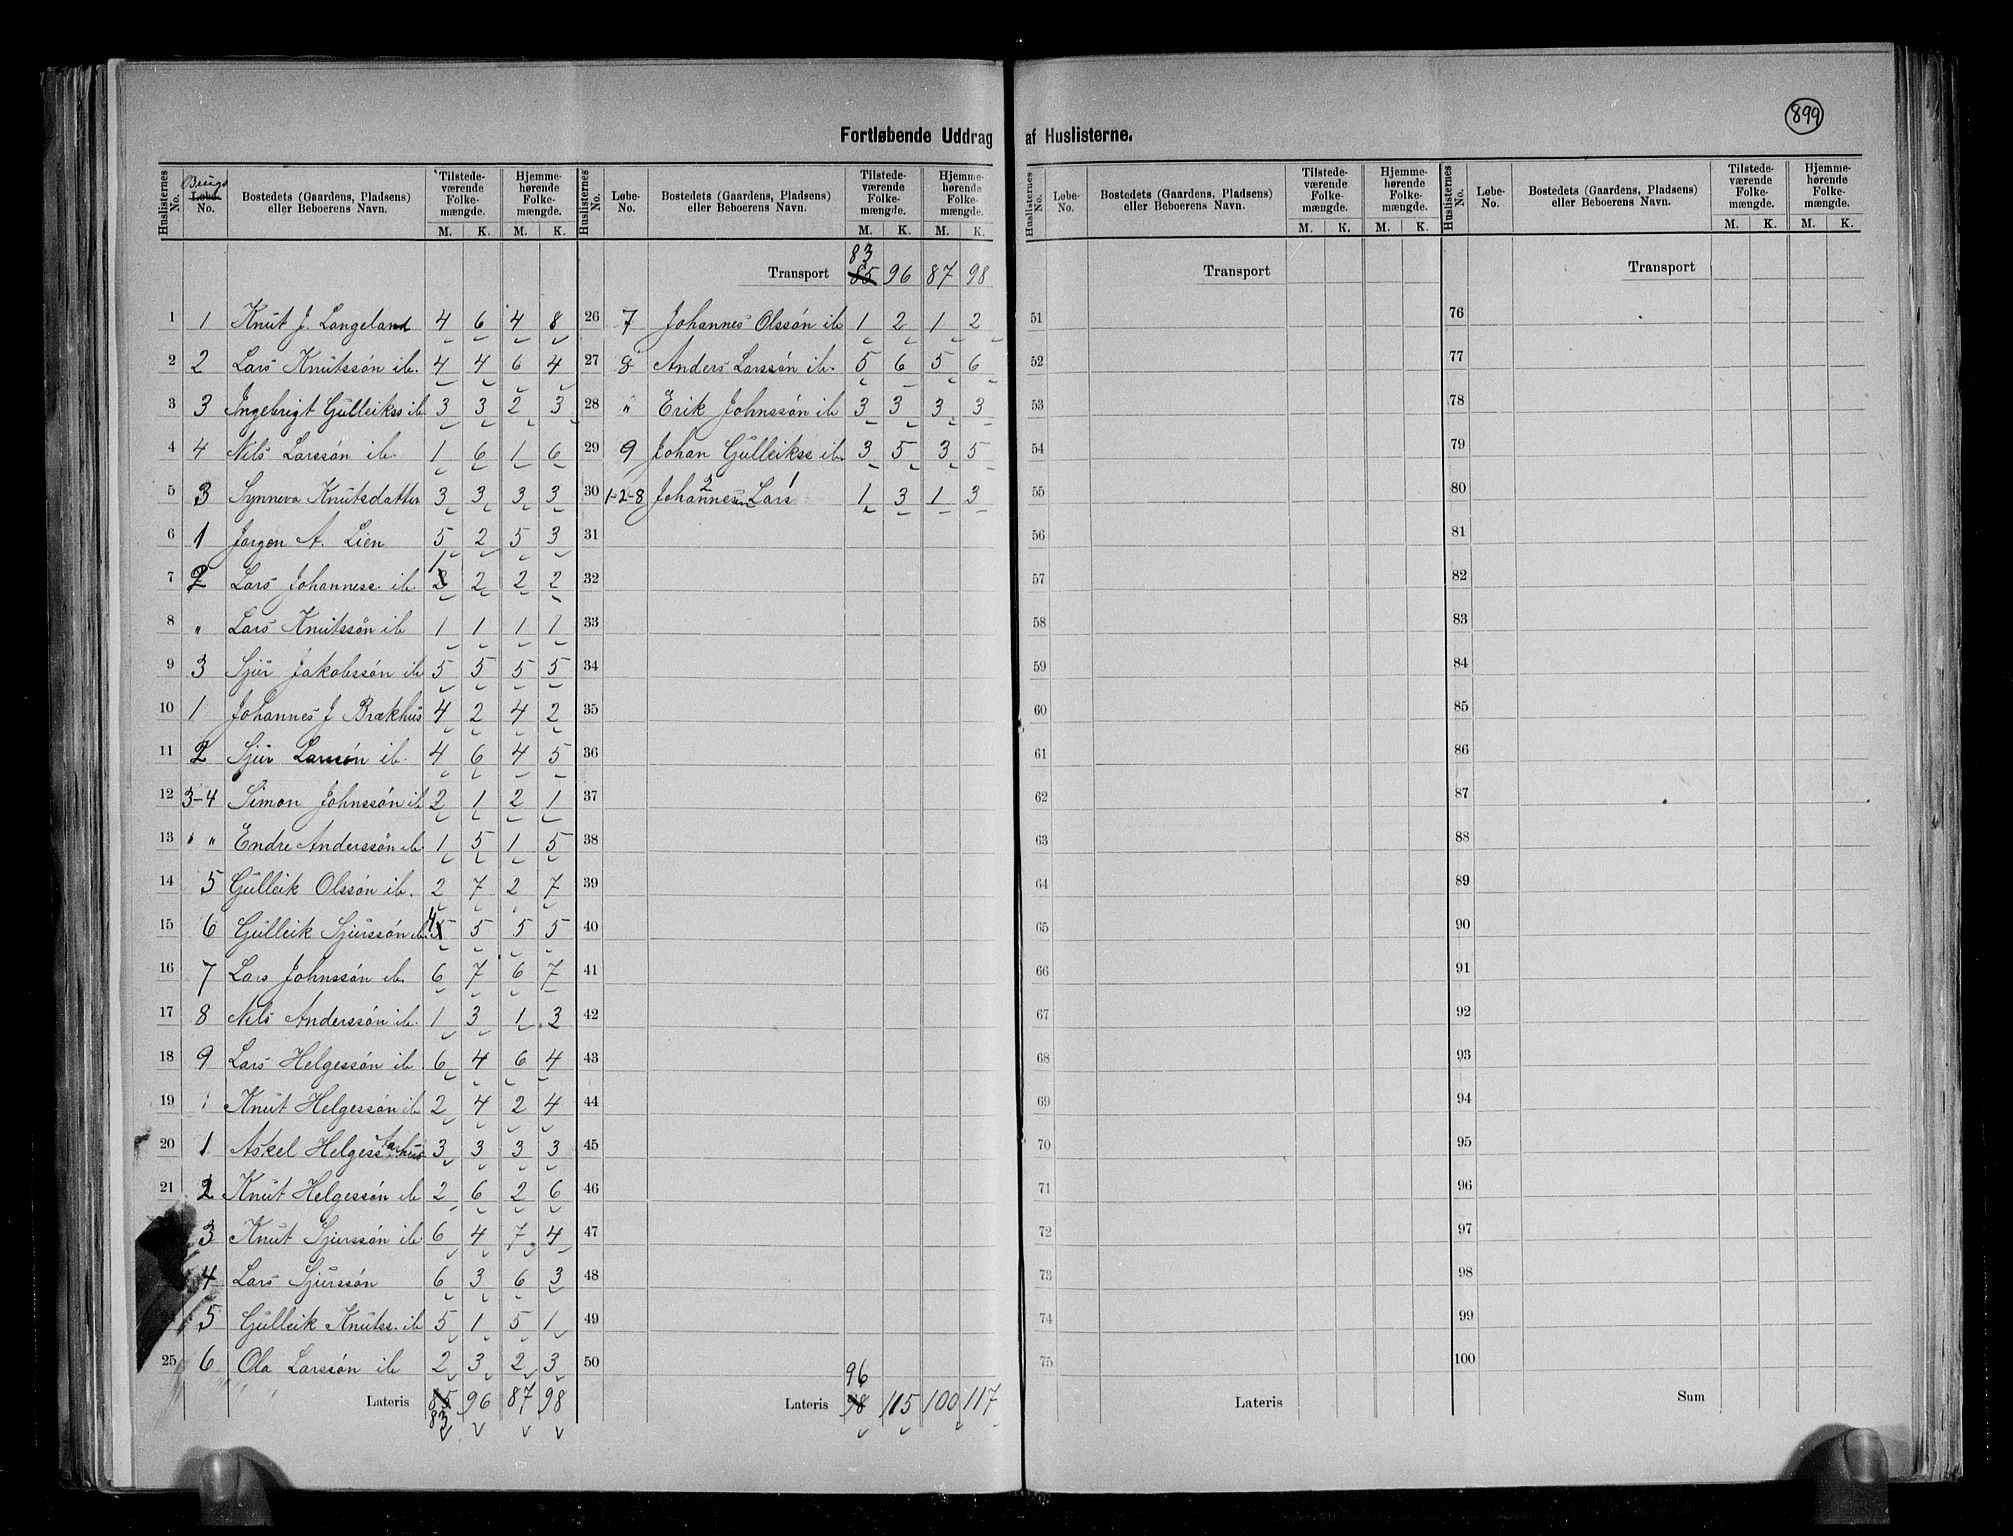 899
Fortløbende Uddrag af Huslisterne.
Huslisternes No. Brugs Løbe- No. Bostedets (Gaardens, Pladsens) eller Beboerens Navn. Tilstede-værende Folke-mængde. M. K. Hjemme-hørende Folke-mængde. M. K.
1 1 Knut J. Langeland 4 6 4 8
2 2 Lars Knutssøn ib. 4 4 6 4
3 3 Ingebrigt Gulleikss ib 3 3 2 3
4 4 Nils Larssøn ib. 1 6 1 6
5 3 Synneva Knutsdatter 3 3 3 3
6 1 Jørgen A. Lien 5 2 5 3
7 2 Lars Johanness. ib. 1 2 2 2 2
8 " Lars Knutssøn ib 1 1 1 1
9 3 Sjur Jakobssøn ib 5 5 5 5
10 1 Johannes J Brækhus 4 2 4 2
11 2 Sjur Larssøn ib. 4 6 4 5
12 3-4 Simon Johnssøn ib 2 1 2 1
13 " " Endre Anderssøn ib. 1 5 1 5
14 5 Gulleik Olssøn ib. 2 7 2 7
15 6 Gulleik Sjurssøn ib. 4 5 5 5 5
16 7 Lars Johnssøn ib. 6 7 6 7
17 8 Nils Anderssøn ib. 1 3 1 3
18 9 Lars Helgessøn ib. 6 4 6 4
19 1 Knut Helgessøn ib 2 4 2 4
20 1 Askel Helgess 3 3 3 3
21 2 Knut Helgessøn ib 2 6 2 6
3 Knut Sjurssøn ib. 6 4 7 4
4 Lars Sjurssøn 6 3 6 3
24 5 Gulleik Knutss. ib 5 1 5 1
25 6 Ola Larssøn ib 2 3 2 3
Lateris 85 96 87 98
83
Huslisternes No. Løbe-No. Bostedets (Gaardens, Pladsens) eller Beboerens Navn. Tilstede-værende Folke-mængde. M. K. Hjemme-hørende Folke-mængde. M. K.
83
Transport 85 96 87 98
26 7 Johannes Olssøn ib 1 2 1 2
27 8 Anders Larssøn ib. 5 6 5 6
28 " Erik Johnssøn ib 3 3 3 3
29 9 Johan Gulleikss ib. 3 5 3 5
2 1
30 1-2-8 Johannessen Lars 1 3 1 3
31
32
33
34
35
36
37
38
39
40
41
42
43
44
45
46
47
48
49
50
96
Lateris 98 115 100 117
Huslisternes No. Løbe-No. Bostedets (Gaardens, Pladsens) eller Beboerens Navn. Tilstede-værende Folke-mængde. M. K. Hjemme-hørende Folke-mængde. M. K.
Transport
51
52
53
54
55
56
57
58
59
60
61
62
63
64
65
66
67
68
69
70
71
72
73
74
75
Lateris
Huslisternes No. Løbe-No. Bostedets (Gaardens, Pladsens) eller Beboerens Navn. Tilstede-værende Folke-mængde. M. K. Hjemme-hørende Folke-mængde. M. K.
Transport
76
77
78
79
80
81
82
83
84
85
86
87
88
89
90
91
92
93
94
95
96
97
98
99
100
Sum